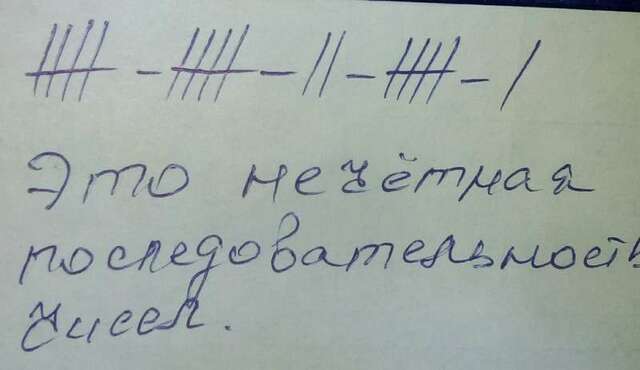 卌 – 卌 – || – 卌 – |
Это нечётная
последовательность
чисел.